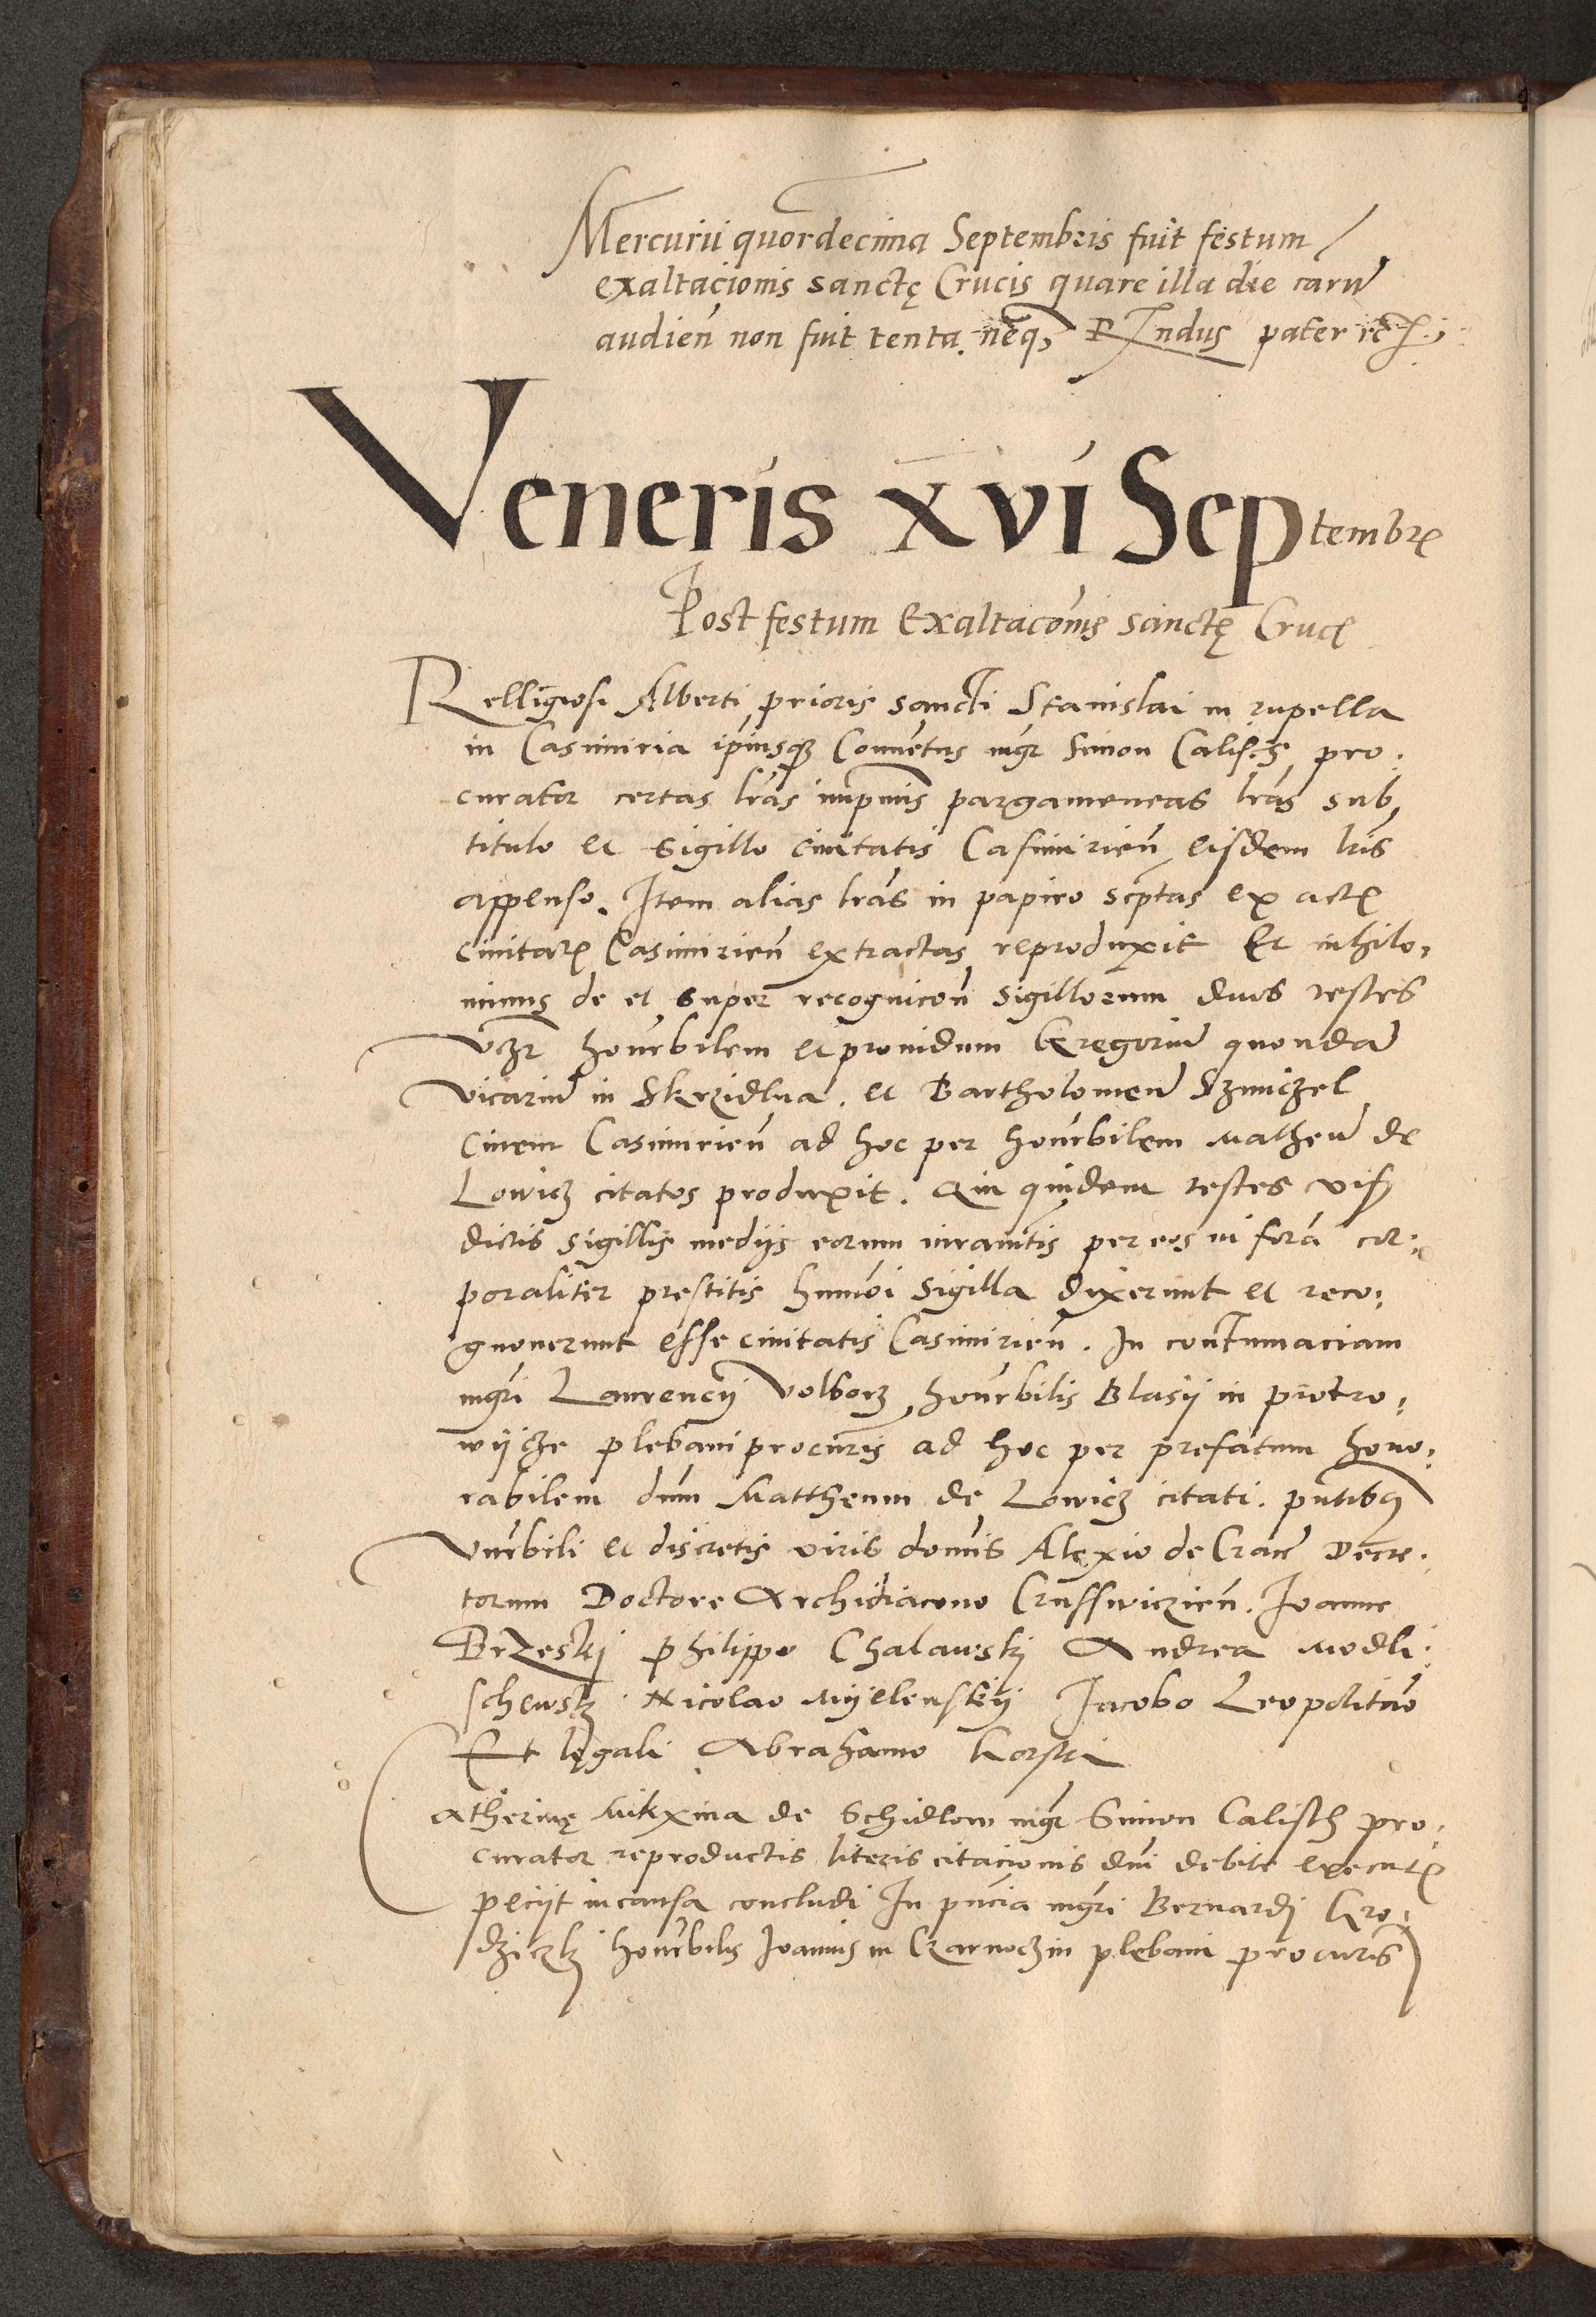 Mercurii quordecima Septembris fuit festum
exaltacionis sanctę Crucis quare illa die carū
audieñ non fuit tenta neq₃ Rndus pater
Veneris xvi Septembr
Post festum Exaltacõnis sanctę Cruc
Relligiosi Alberti prioris sancti Stanislai in rupella
in Casimiria ipiusq₃ Conuẽtus mgr Simon Calisch pro:
curator certas lras inpmis pargameneas lras sub
titulo et sigillo ciuitatis Casimirieñ eisdem lris
appenso. Item alias lras in papiro scptas ex act
ciuitat Casimirieñ extractas reproduxit Et nihilo:
minus de et super recognicoñ sigillorum duos testes
vz honrbilem et prouidum Gregoriū quondā
vicariū in Skrzidlna. et Bartholomeū Szmiczel
ciuem Casimirieñ ad hoc per honrbilem Matheū de
Lowicz citatos produxit. Qui quidem testes vis
dictis sigillis medijs eorum iuramtis per eos in forã cor:
poraliter prestitis hmõi sigilla dixerunt et reco:
gnouerunt esse ciuitatis Casimirieñ. In contumaciam
mgri Laurencij Volborz honrbilis Blasij in piotro:
wijcze plebani procuris ad hoc per prefatum hono:
rabilem dum Mattheum de Lowicz citati. pntib₉
Vnrbili et discretis viris domis Alexio de Crac̃ Decre:
torum Doctore Archidiacono Crusswiczieñ. Ioanne
Brzeskj Philippo Chalawskj Andrea Modli:
schewskj Nicolao Mijelenskij Jacobo Leopolitão
Et legali Abrahamo Gorski
Catherinę Mikxina de Schidlow mgr Simon Calisch pro:
curator reproductis literis citacionis dni debite execut
peciit in causa concludi In pncia mgri Bernardj Gro:
dziczkj honrbilis Ioannis in Czarnoczin plebani procuris